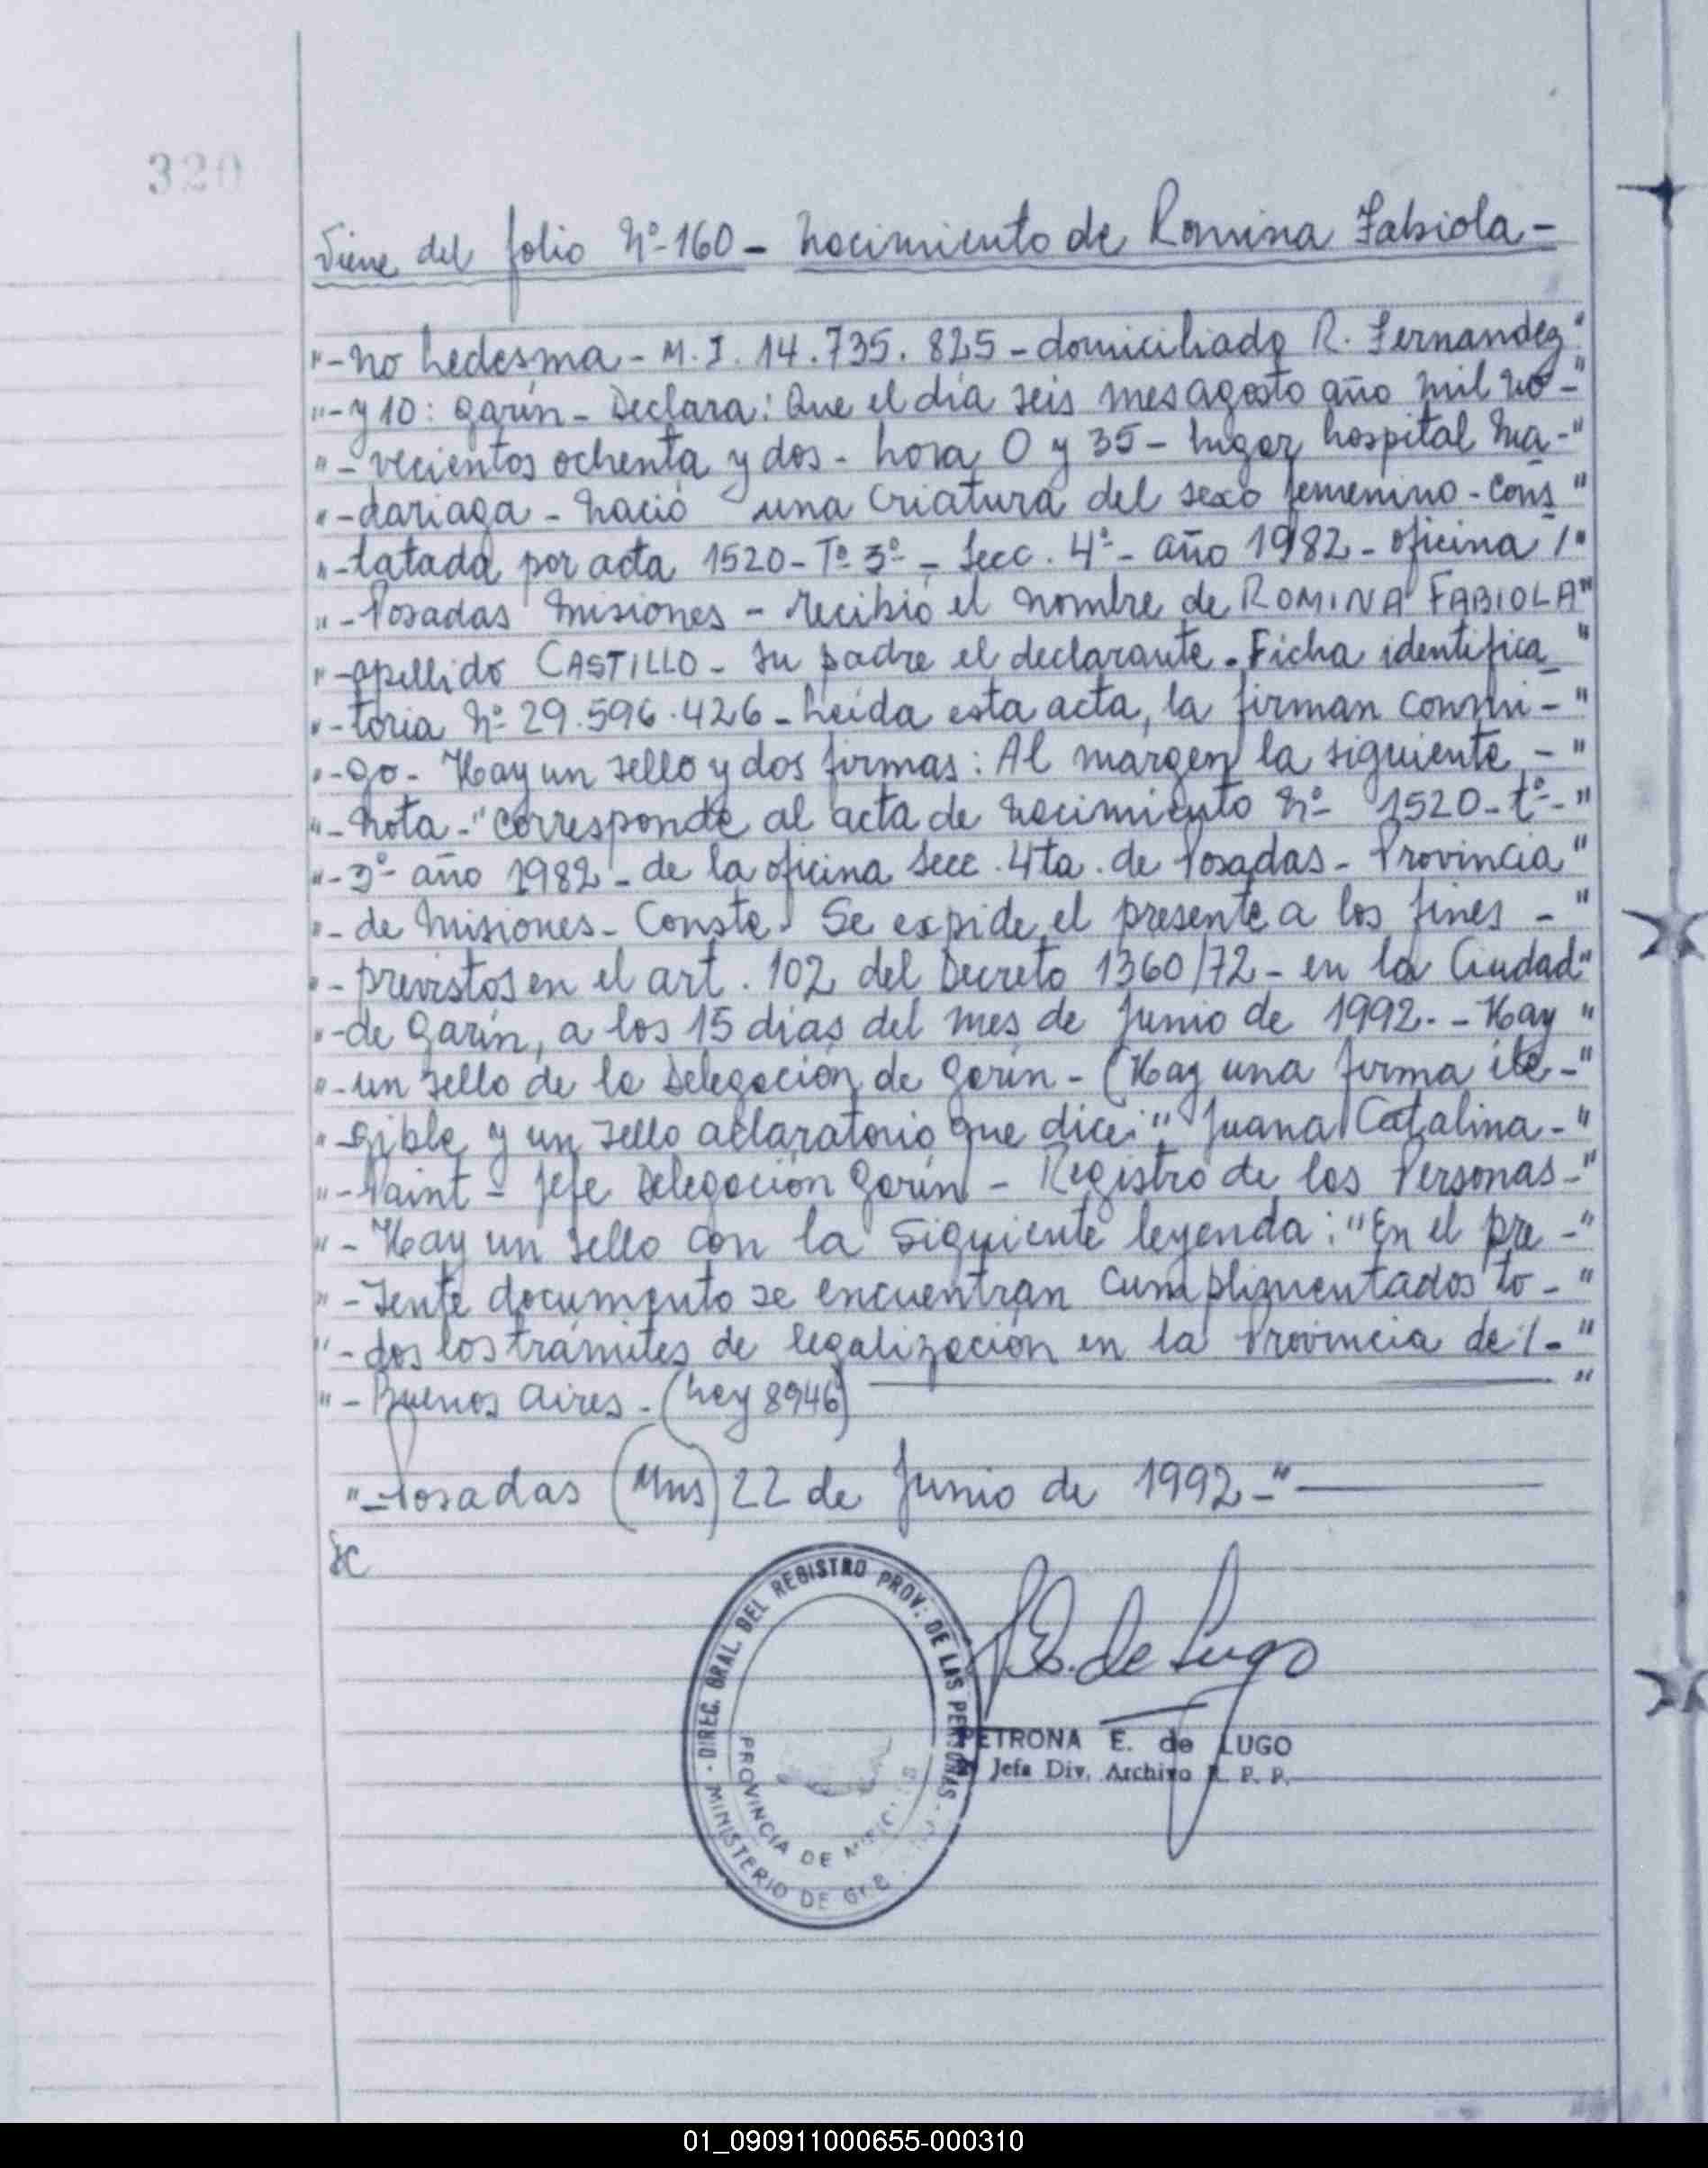 320
Viene del folio Nº-160 - Nacimiento de Romina Fabiola -
"- no Ledesma - M. I. 14.735.825 - domiciliado R. Fernandez "
"- y 10: garín - Declara: Que el día seis mes agosto año mil no - "
"- vecientos ochenta y dos - hora 0 y 35 - lugar hospital Ma - "
"- dariaga - Nació una criatura del sexo femenino - Cons "
"- tatada por acta 1520 - Tº 3º - Secc. 4º - año 1982 - oficina /"
"- Posadas Misiones - recibió el nombre de ROMINA FABIOLA "
"- apellido CASTILLO - su padre el declarante. Ficha identifica_ "
"- toria Nº 29.596.426 - Leída esta acta, la firman conmi - "
"- go - Hay un sello y dos firmas: Al margen la siguiente - "
"- Nota - "corresponde al acta de Nacimiento Nº 1520 - tº - "
"- 3º año 1982 - de la oficina Secc. 4ta. de Posadas - Provincia "
"- de Misiones - Conste. Se expide el presente a los fines - "
"- previstos en el art. 102 del Decreto 1360/72 - en la Ciudad "
"- de garín, a los 15 días del mes de Junio de 1992. - Hay "
"- un sello de la Delegación de garín - (Hay una firma ile - "
"- gible y un sello aclaratorio que dice: " Juana Catalina - "
"- - Jefe Delegación garín - Registro de las Personas - "
"- Hay un sello con la siguiente leyenda: "En el pre - "
"- sente documento se encuentran cumplimentados to - "
"- dos los trámites de legalización en la Provincia de /- "
"- Buenos Aires - (Ley 8946) "
"- Posadas (Mns) 22 de Junio de 1992 - "
SC
P.E. de Lugo
DIREC. GRAL. DEL REGISTRO PROV. DE LAS PERSONAS
PROVINCIA DE MISIONES
MINISTERIO DE GOB.
PETRONA E. de LUGO
Jefa Div. Archivo R. P. P.
01_090911000655-000310